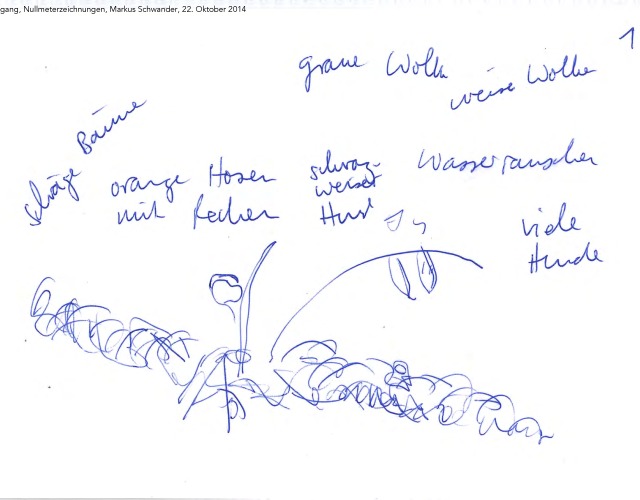 gang, Nullmeterzeichnungen, Markus Schwander, 22. Oktober 2014
1
graue Wolke
weise Wolke
schräge Bäume
orange Hosen
mit Rechen
schwaz-
weiser
Hund
Wasserrauschen
viele
Hunde